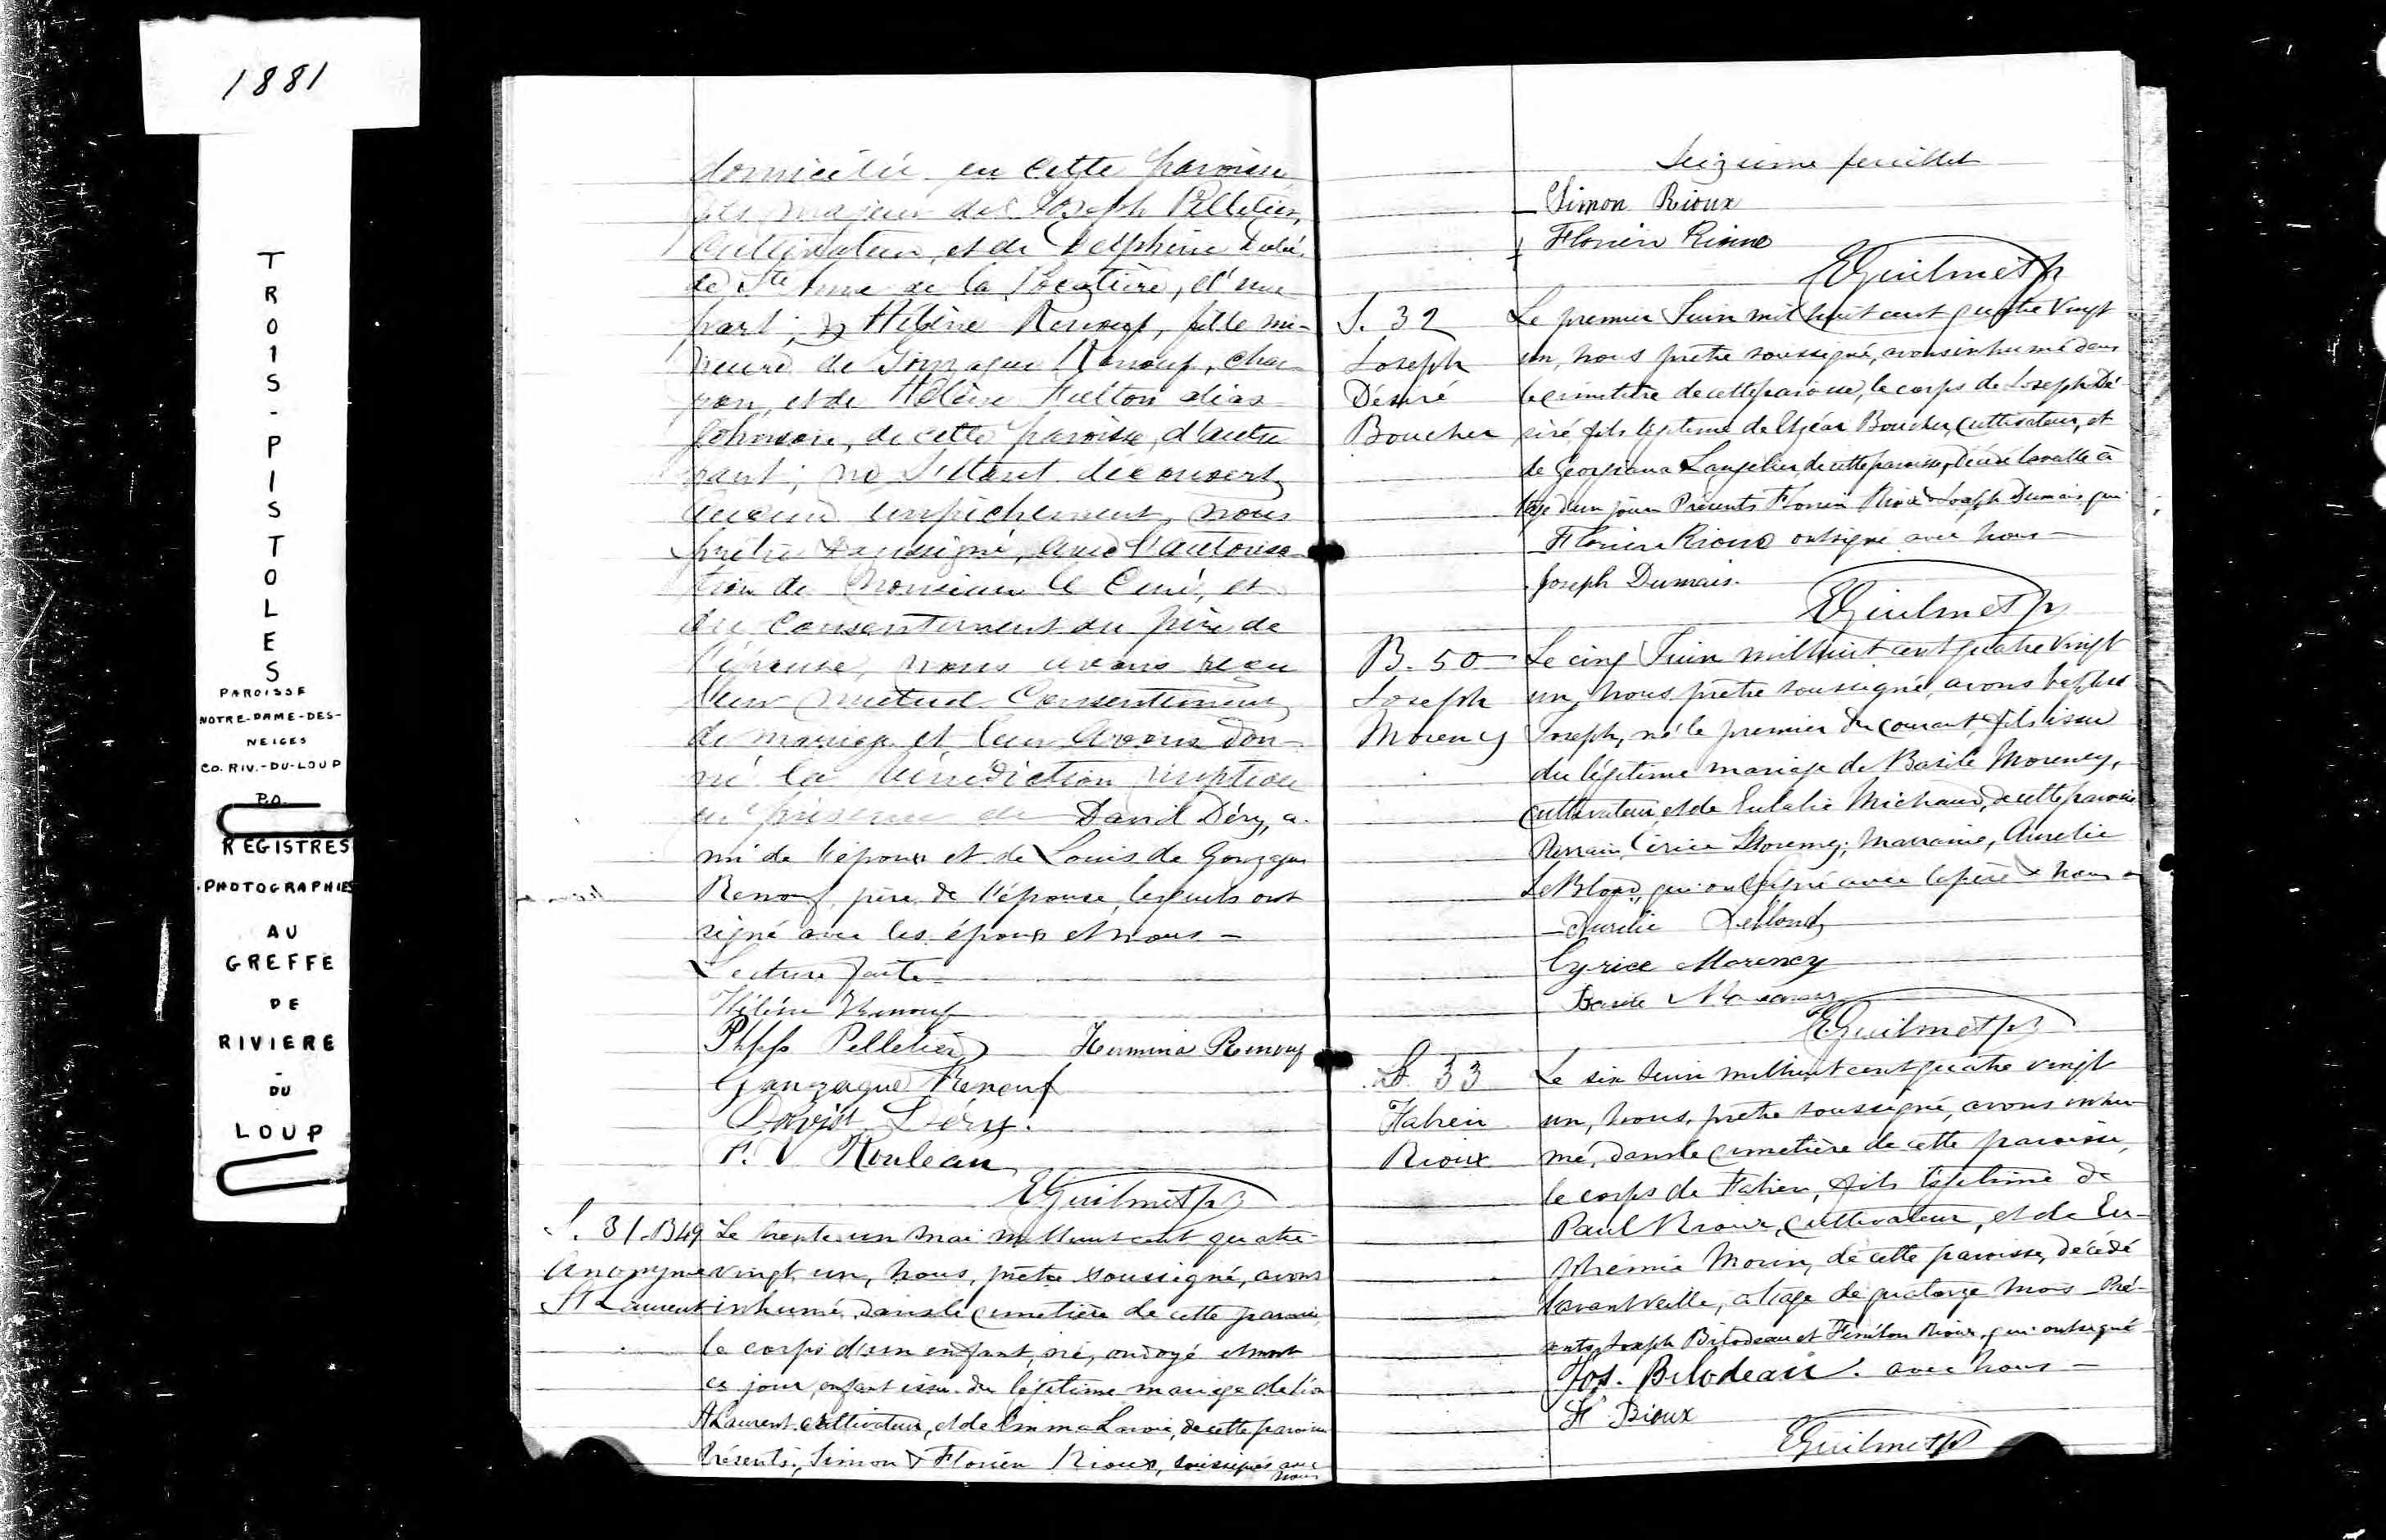 1881
TROIS-PISTOLES
PAROISSE
NOTRE-DAME-DES-
NEIGES
CO. RIV.-DU-LOUP
P.Q.
REGISTRES
PHOTOGRAPHIES
AU
GREFFE
DE
RIVIERE
-
DU
LOUP
domicilié en cette paroisse
fils majeur de Joseph Pelletier,
Cultivateur, et de Delphine Dubé,
de Ste Anne de la Pocatière, d'une
part; & Hélène Renouf, fille mi-
neure de Gonzague Renouf,
et de Hélène Fulton alias
Johnson, de cette paroisse, d'autre
part; ne s'étant découvert
aucun empêchement, nous
prêtre soussigné, avec l'autorisa-
tion de Monsieur le Curé, et
du Consentement du père de
l'épouse, nous avons reçu
leur mutuel Consentement
de mariage et leur avons don-
né la bénédiction nuptiale
en présence de David Déry, a-
mi de l'époux et de Louis de Gonzague
Renouf, père de l'épouse, lesquels ont
signé avec les époux et nous -
Lecture faite
Hélène Renouf
Phpe Pelletier Hermina Renouf
Gonzague Renouf
David Déry.
P. V Rouleau
EGuilmet ptr
S. 31. B49 Le trente un mai mil huit cent quatre
Anonyme vingt un, nous, prêtre soussigné, avons
St Laurent inhumé dans le cimetière de cette paroisse
le corps d'un enfant, né, ondoyé et mort
ce jour, enfant issu du légitime mariage de
St Laurent cultivateur, et de Emma Lavoie, de cette paroisse
Présents, Simon & Florien Rioux, soussignés avec
nous
Seizième feuillet
Simon Rioux
Florien Rioux
EGuilmet ptr
S. 32 Le premier Juin mil huit cent quatre vingt
Joseph un, nous prêtre soussigné, avons inhumé dans
Désiré le cimetière de cette paroisse, le corps de Joseph Dé-
Boucher siré fils légitime de Elzéar Boucher, cultivateur, et
de Georgiana Langelier, de cette paroisse, décédé la veille à
l'âge d'un jour Présents Florien Rioux & Joseph Dumais qui
Florien Rioux ont signé avec nous -
Joseph Dumais.
EGuilmet ptr
B. 50 Le cinq Juin mil huit cent quatre vingt
Joseph un, nous prêtre soussigné, avons baptisé
Morency Joseph, né le premier du courant, fils issu
du légitime mariage de Basile Morency,
cultivateur, et de Eulalie Michaud, de cette paroisse
Parrain, Cirice Morency; Marraine, Aurelie
LeBlond, qui ont signé avec le père & nous -
Aurelie Leblond
Cyrice Morency
Basile Morency
EGuilmet ptr
S. 33 Le six Juin mil huit cent quatre vingt
Fabien un, nous, prêtre soussigné, avons inhu-
Rioux mé, dans le cimetière de cette paroisse,
le corps de Fabien, fils légitime de
Paul Rioux, cultivateur, et de Eu-
phémie Morin, de cette paroisse, décédé
l'avant veille, à l'âge de quatorze mois Pré-
sents, Joseph Bilodeau et Fénélon Rioux, qui ont signé
Jos. Bilodeau. avec nous -
F. Rioux
EGuilmet ptr